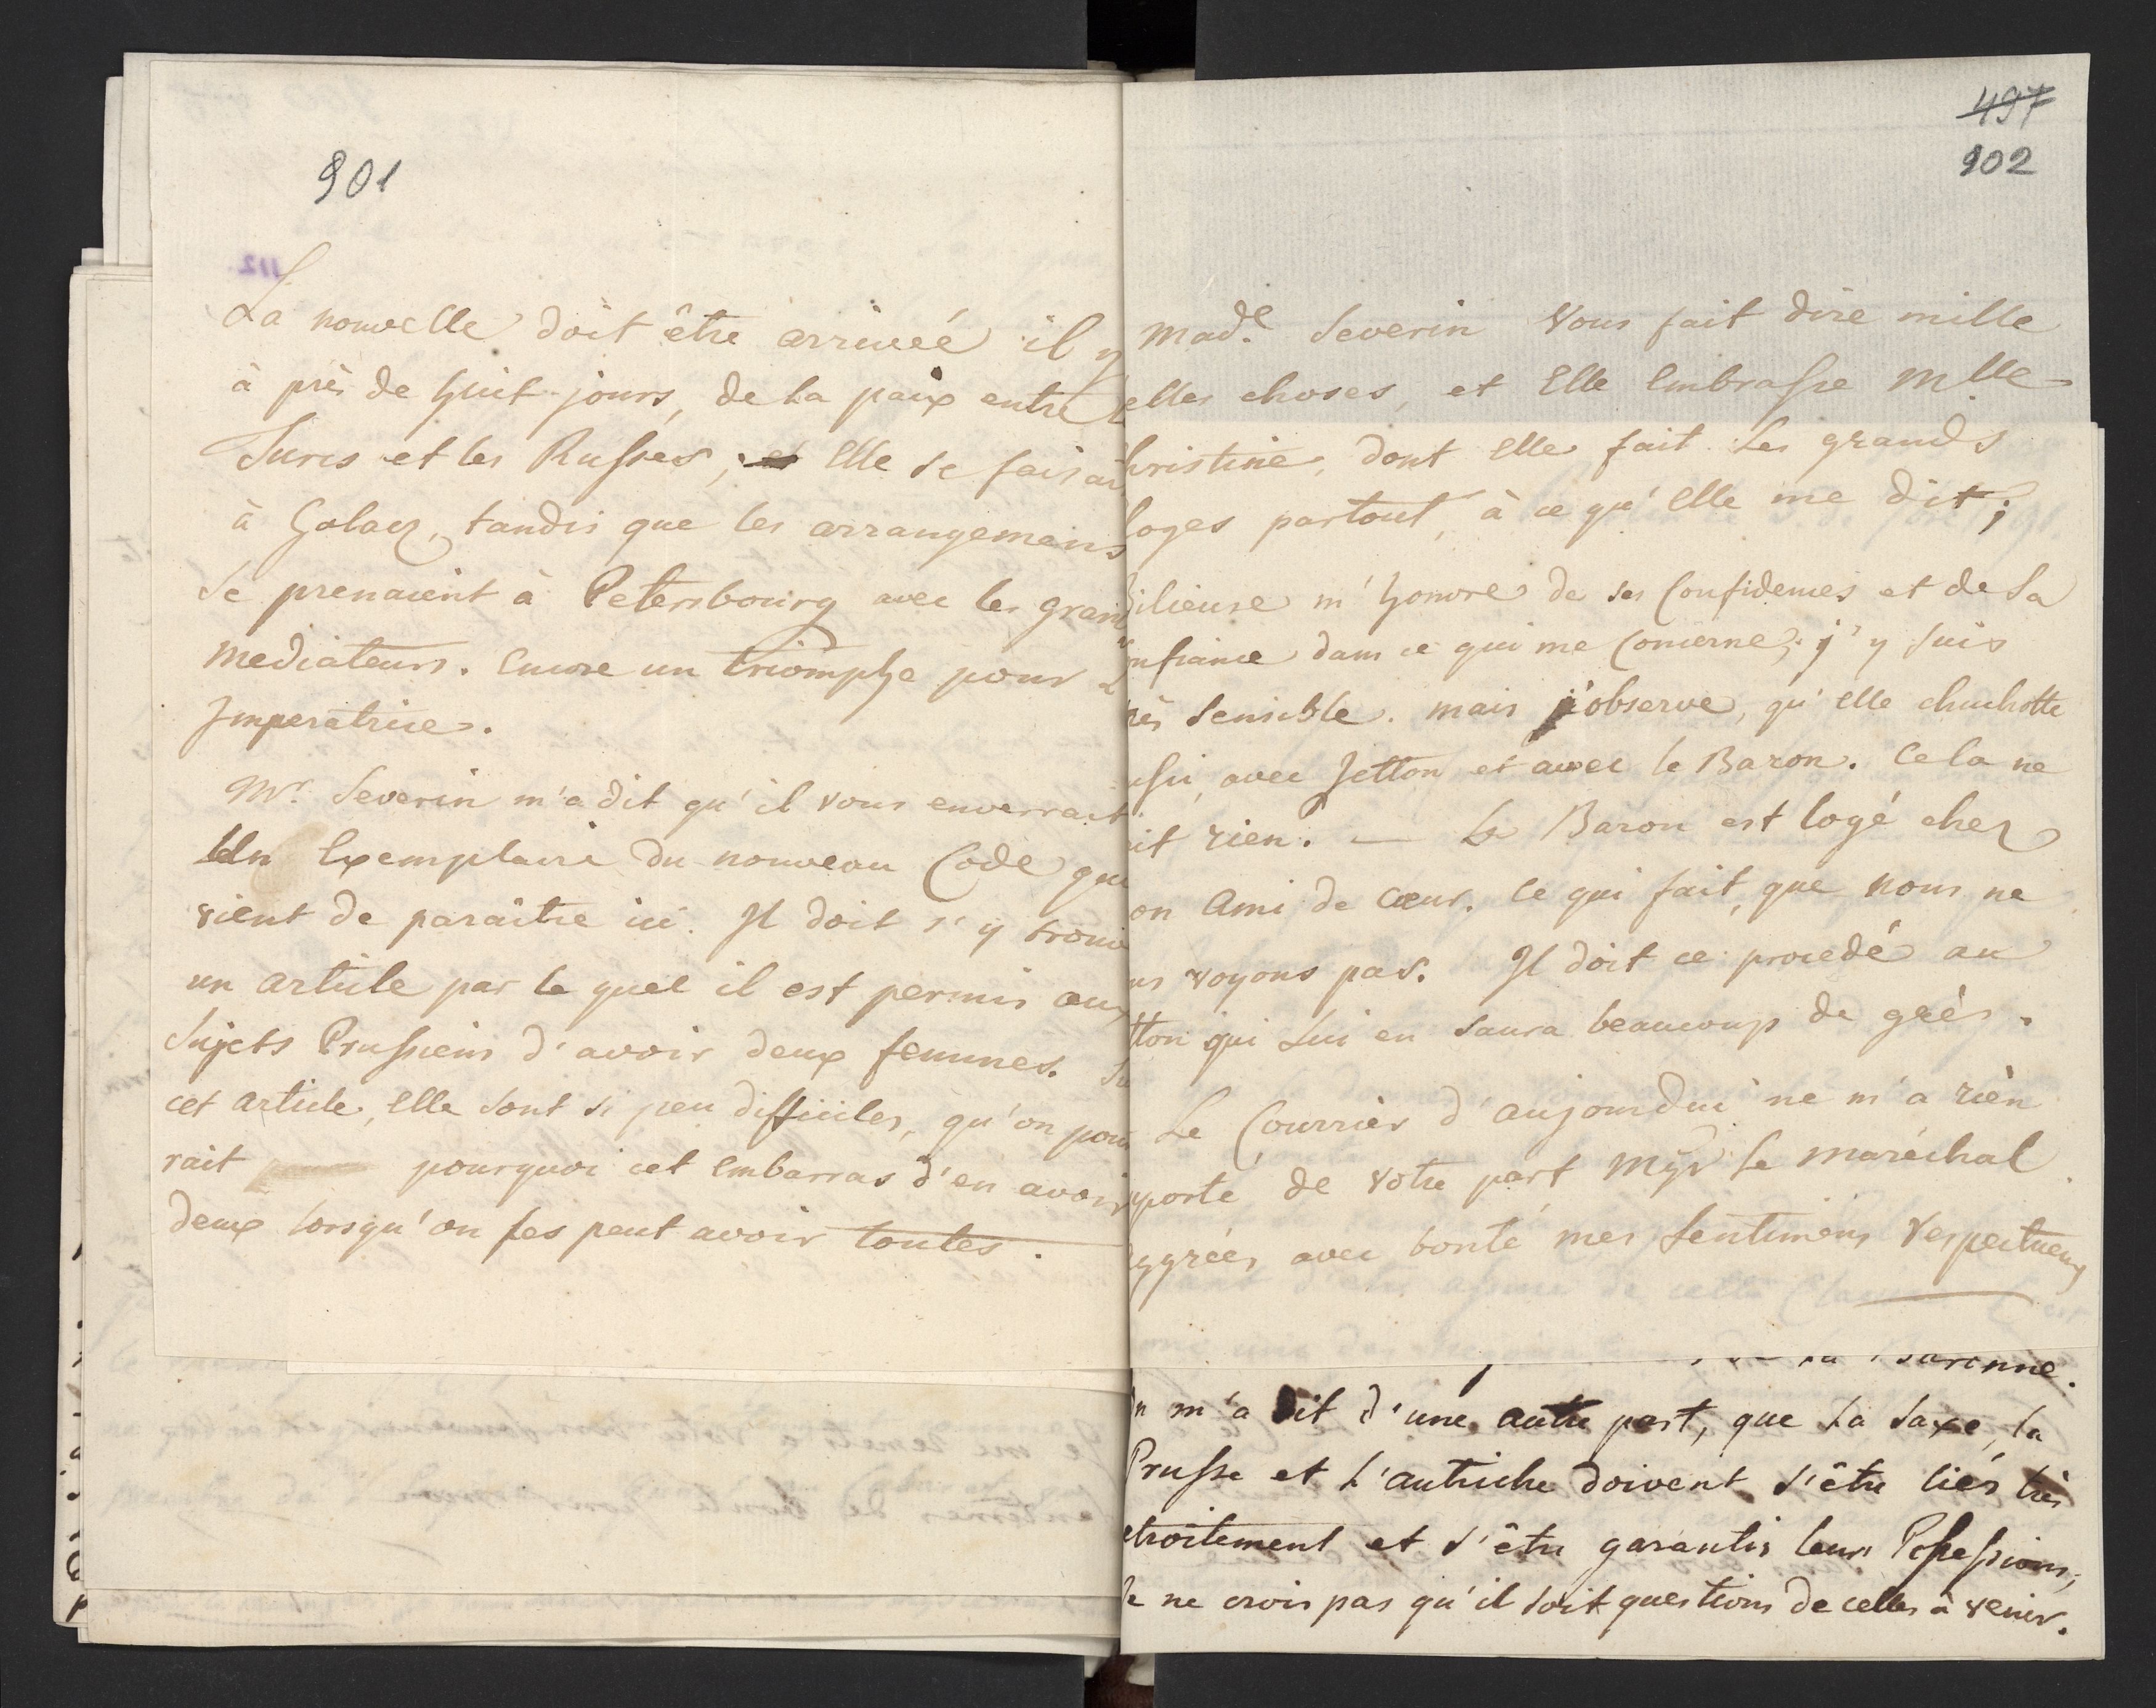 901
112
La nouvelle doit être arrivéé il y
à près de huit jours, de la paix entre
Turcs et les Russes, elle se faisai
à Galacz, tandis que les arrangemens
se prenaient à Petersbourg avec les gran
Mediateurs. Encore un triomphe pour L'
Imperatrice.
Mr. Severin m'a dit qu'il vous enverrait
Un Exemplaire du nouveau Code qui
vient de paraître ici. Il doit s'y trouv
un article par le quel il est permis aux
Sujets Prussiens d'avoir deux femmes. Su
cet article, elle sont si peu difficiles, qu'on pour
rait pourquoi cet embarras d'en avoir
deux lorsqu'on les peut avoir toutes.
497
902
Made. Severin Vous fait dire mille
elles choses, et Elle embrasse Mlle
hristine, dont elle fait les grands
loges partout, à ce qu'elle me dit;
bilieuse m'honore de ses Confidences et de sa
nfiance dans ce qui me concerne, j'y suis
rès sensible. mais j'observe, qu'elle chuchotte
ussi, avec Jetton et avec le Baron. Cela ne
it rien. — Le Baron est logé chez
on Ami de cœur. Ce qui fait, que nous ne
us voyons pas. Il doit ce procedé au
tton qui lui en saura beaucoup de gréés.
Le Courrier d'aujourdui ne m'a rièn
pporté de votre part Mgr le maréchal
aggréés avec bonté mes sentimens respectueux
n m'a dit d'une autre part, que la Saxe, la
Prusse et L'autriche doivent s'être liés très
etroitement et s'être garantis leurs Possessions,
Je ne crois pas qu'il soit questions de celles à venir.